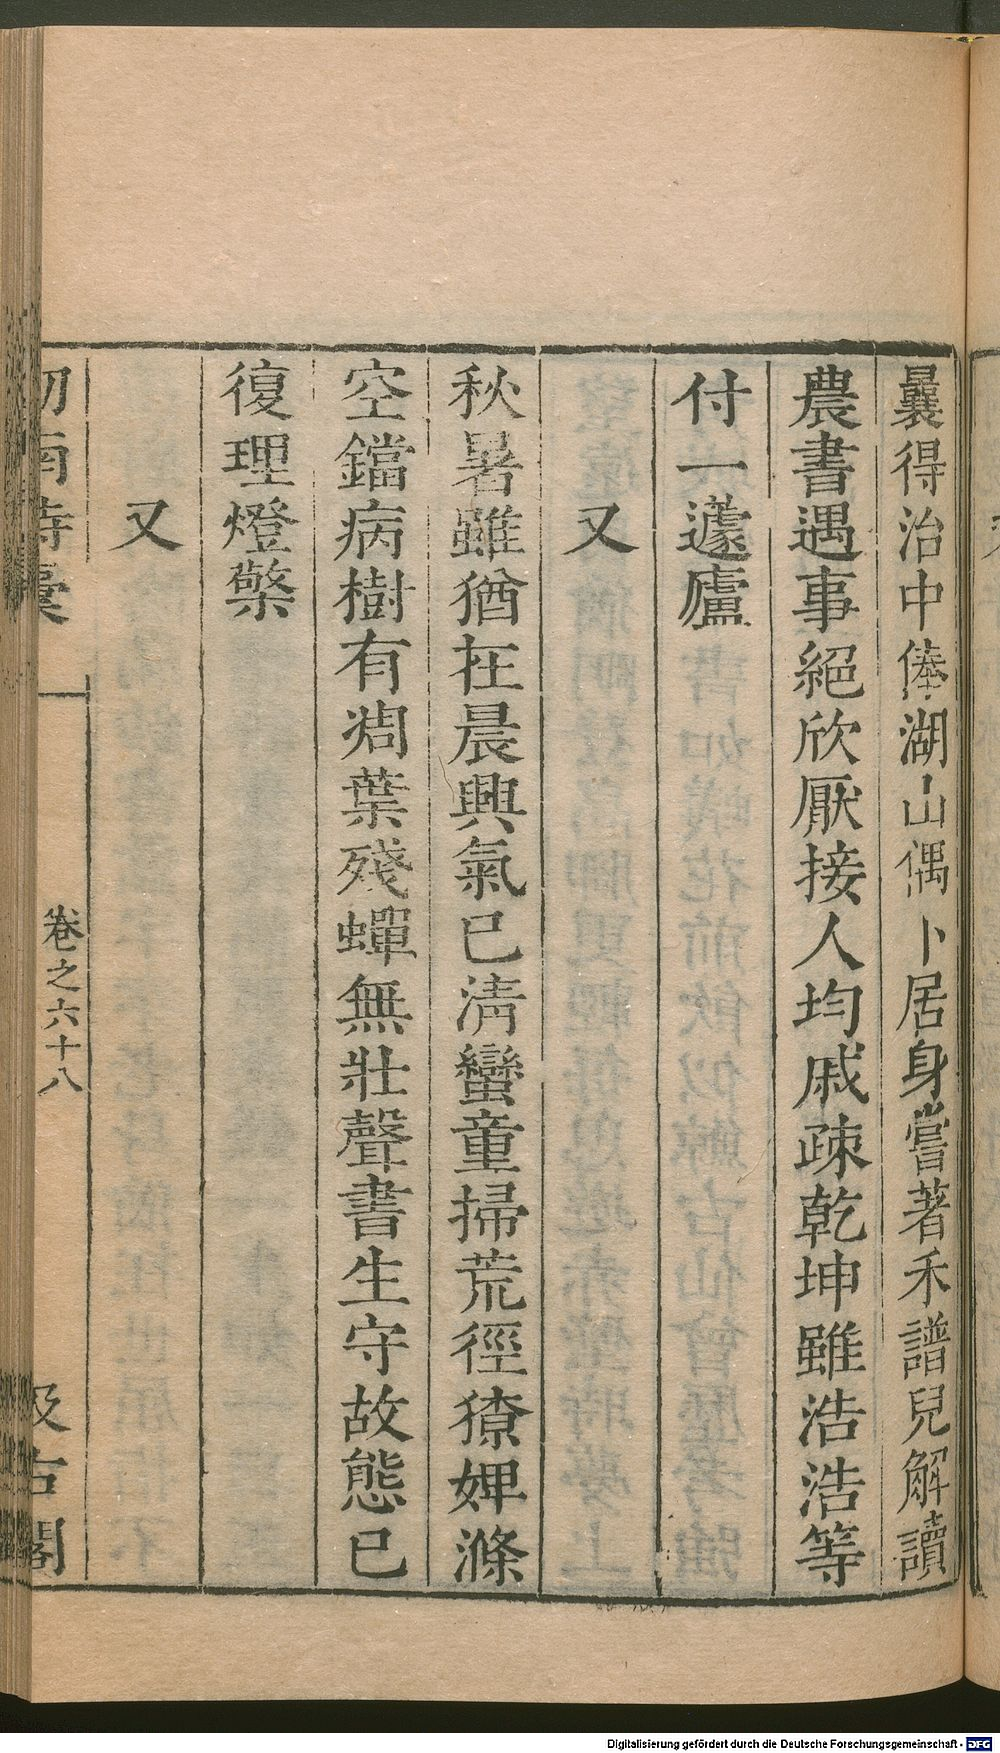 曩得治中俸湖山偶卜居身嘗著禾譜兒解讀
農書遇事絕欣厭接人均戚疎乾坤雖浩浩等
付一蘧廬
又
秋暑雖猶在晨興氣已清蠻童掃荒徑獠婢滌
空鐺病樹有凋葉殘蟬無壯聲書生守故態已
復理燈檠
又
卷之六十八
汲古閣
Digitalisierung gefördert durch die Deutsche Forschungsgemeinschaft - DFG